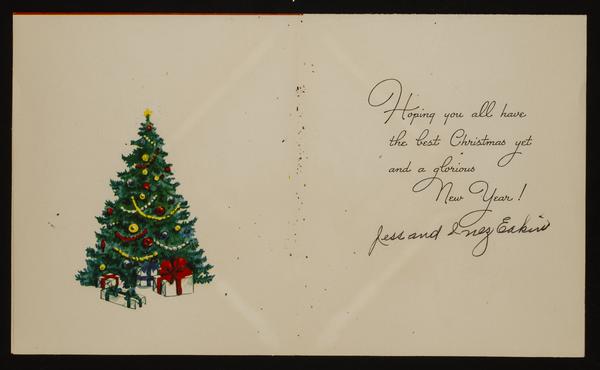 Hoping you all have
the best Christmas yet
and a glorious
New Year!
Jess and Inez Eakin